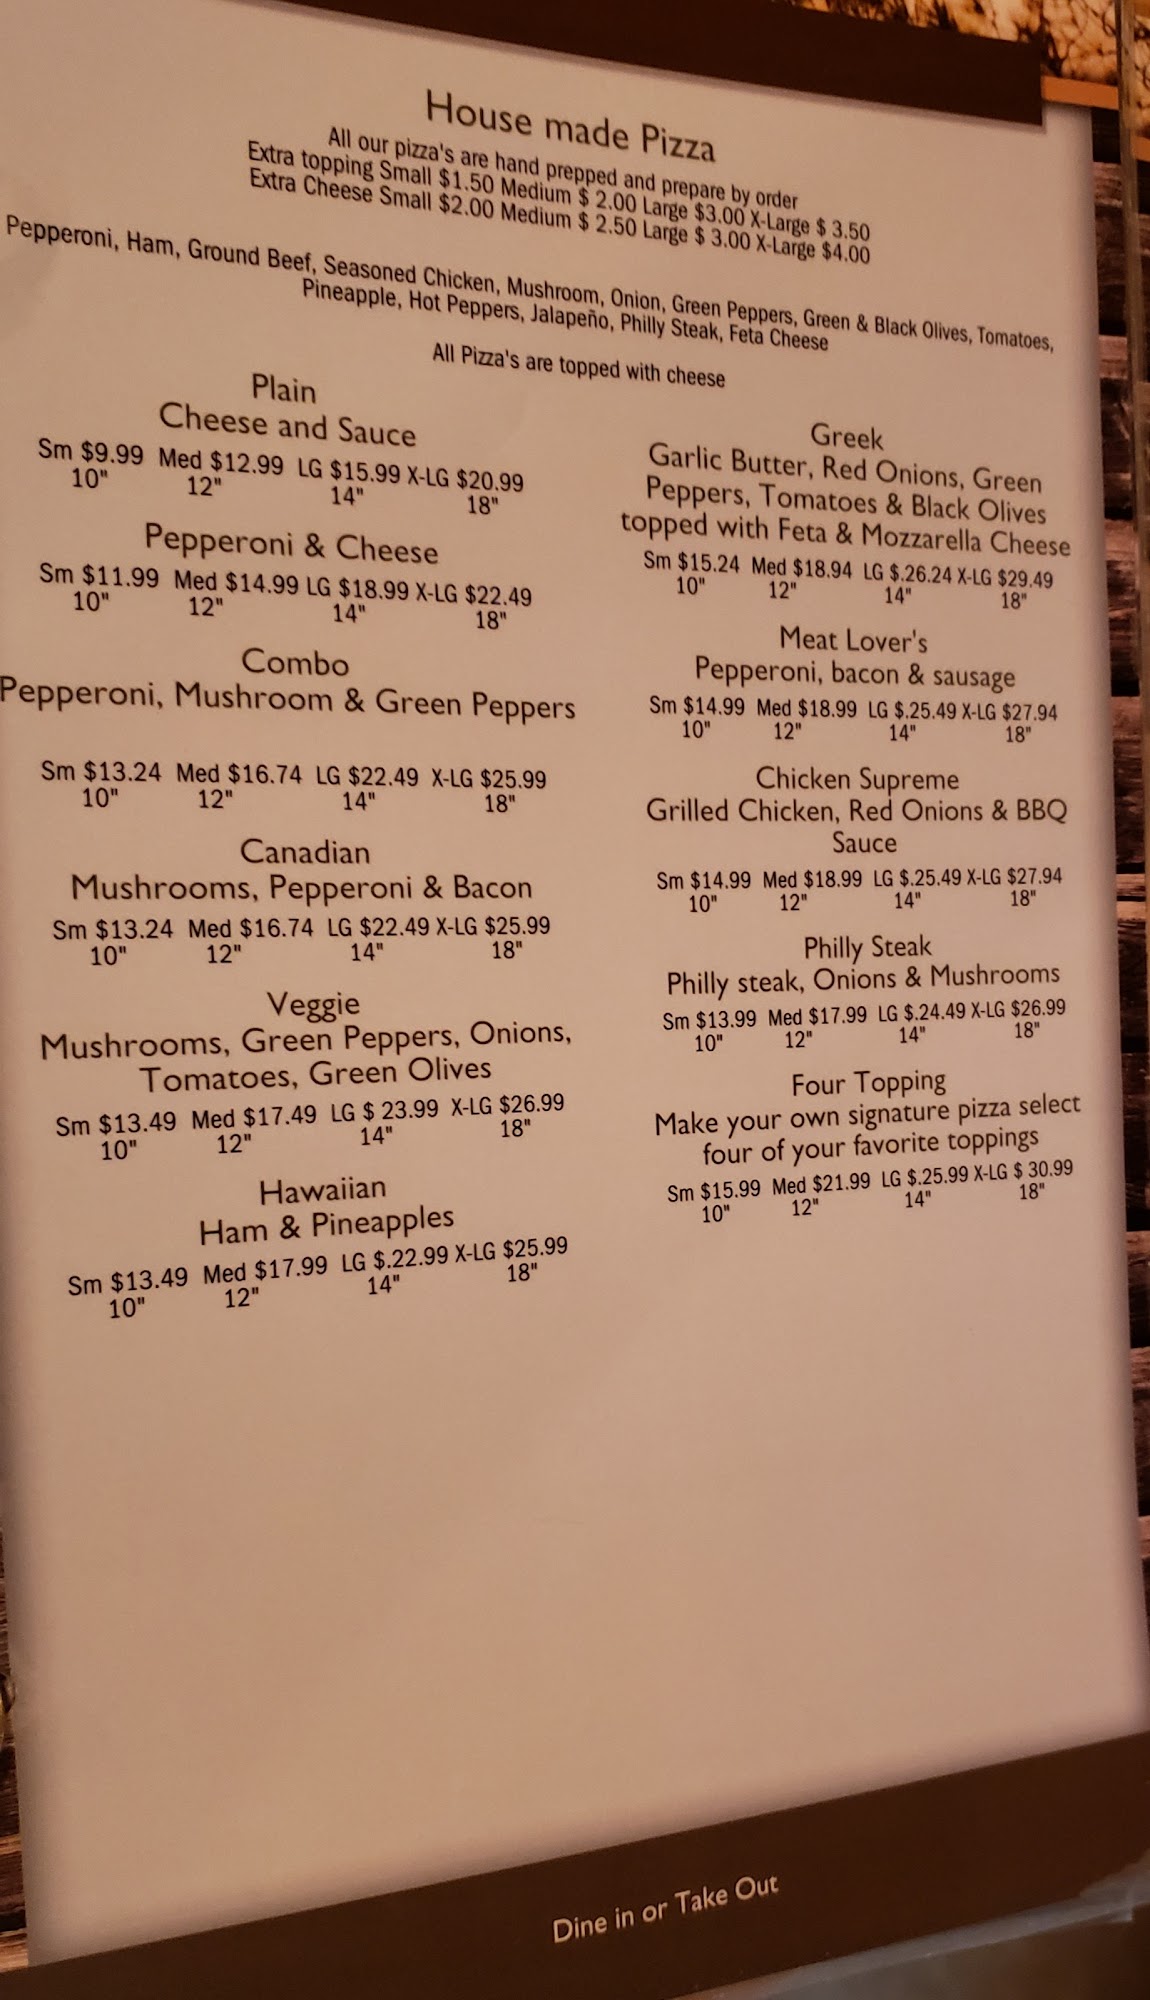 House made Pizza
All our pizza's are hand prepped and prepare by order
Extra topping Small $1.50 Medium $ 2.00 Large $3.00 X-Large $ 3.50
Extra Cheese Small $2.00 Medium $ 2.50 Large $ 3.00 X-Large $4.00
Pepperoni, Ham, Ground Beef, Seasoned Chicken, Mushroom, Onion, Green Peppers, Green & Black Olives, Tomatoes,
Pineapple, Hot Peppers, Jalapeño, Philly Steak, Feta Cheese
All Pizza's are topped with cheese
Plain
Cheese and Sauce
Sm $9.99 Med $12.99 LG $15.99 X-LG $20.99
10" 12" 14" 18"
Pepperoni & Cheese
Sm $11.99 Med $14.99 LG $18.99 X-LG $22.49
10" 12" 14" 18"
Combo
Pepperoni, Mushroom & Green Peppers
Sm $13.24 Med $16.74 LG $22.49 X-LG $25.99
10" 12" 14" 18"
Canadian
Mushrooms, Pepperoni & Bacon
Sm $13.24 Med $16.74 LG $22.49 X-LG $25.99
10" 12" 14" 18"
Veggie
Mushrooms, Green Peppers, Onions,
Tomatoes, Green Olives
Sm $13.49 Med $17.49 LG $ 23.99 X-LG $26.99
10" 12" 14" 18"
Hawaiian
Ham & Pineapples
Sm $13.49 Med $17.99 LG $.22.99 X-LG $25.99
10" 12" 14" 18"
Greek
Garlic Butter, Red Onions, Green
Peppers, Tomatoes & Black Olives
topped with Feta & Mozzarella Cheese
Sm $15.24 Med $18.94 LG $.26.24 X-LG $29.49
10" 12" 14" 18"
Meat Lover's
Pepperoni, bacon & sausage
Sm $14.99 Med $18.99 LG $.25.49 X-LG $27.94
10" 12" 14" 18"
Chicken Supreme
Grilled Chicken, Red Onions & BBQ
Sauce
Sm $14.99 Med $18.99 LG $.25.49 X-LG $27.94
10" 12" 14" 18"
Philly Steak
Philly steak, Onions & Mushrooms
Sm $13.99 Med $17.99 LG $.24.49 X-LG $26.99
10" 12" 14" 18"
Four Topping
Make your own signature pizza select
four of your favorite toppings
Sm $15.99 Med $21.99 LG $.25.99 X-LG $ 30.99
10" 12" 14" 18"
Dine in or Take Out